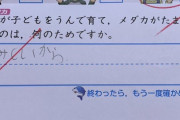 が子どもをうんで育て，メダカがたま
のは，何のためですか。
みにくいから
終わったら，もう一度確か